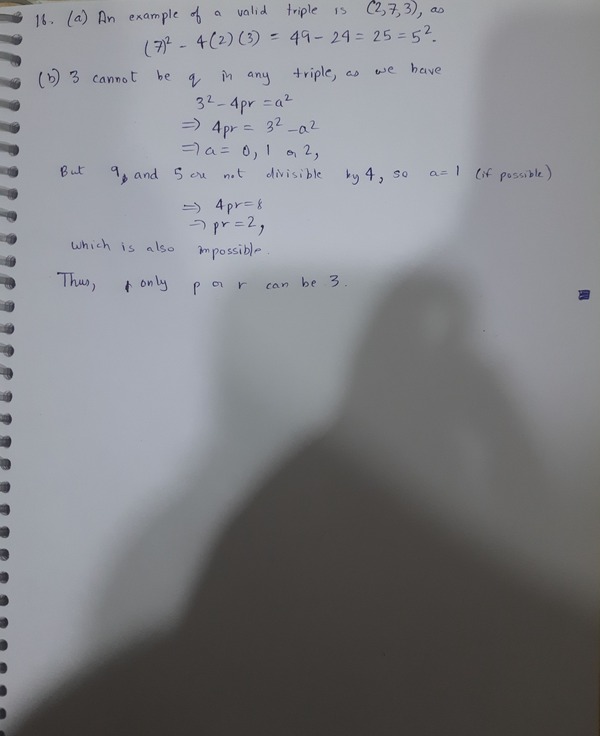 16. (a) An example of a valid triple is (2,7,3), as
(7)² - 4(2)(3) = 49 - 24 = 25 = 5².
(b) 3 cannot be q in any triple, as we have
3² - 4pr = a²
⇒ 4pr = 3² - a²
⇒ a = 0, 1 or 2,
But 9, and 5 are not divisible by 4, so a = 1 (if possible)
⇒ 4pr = 8
⇒ pr = 2,
which is also impossible.
Thus, only p or r can be 3.